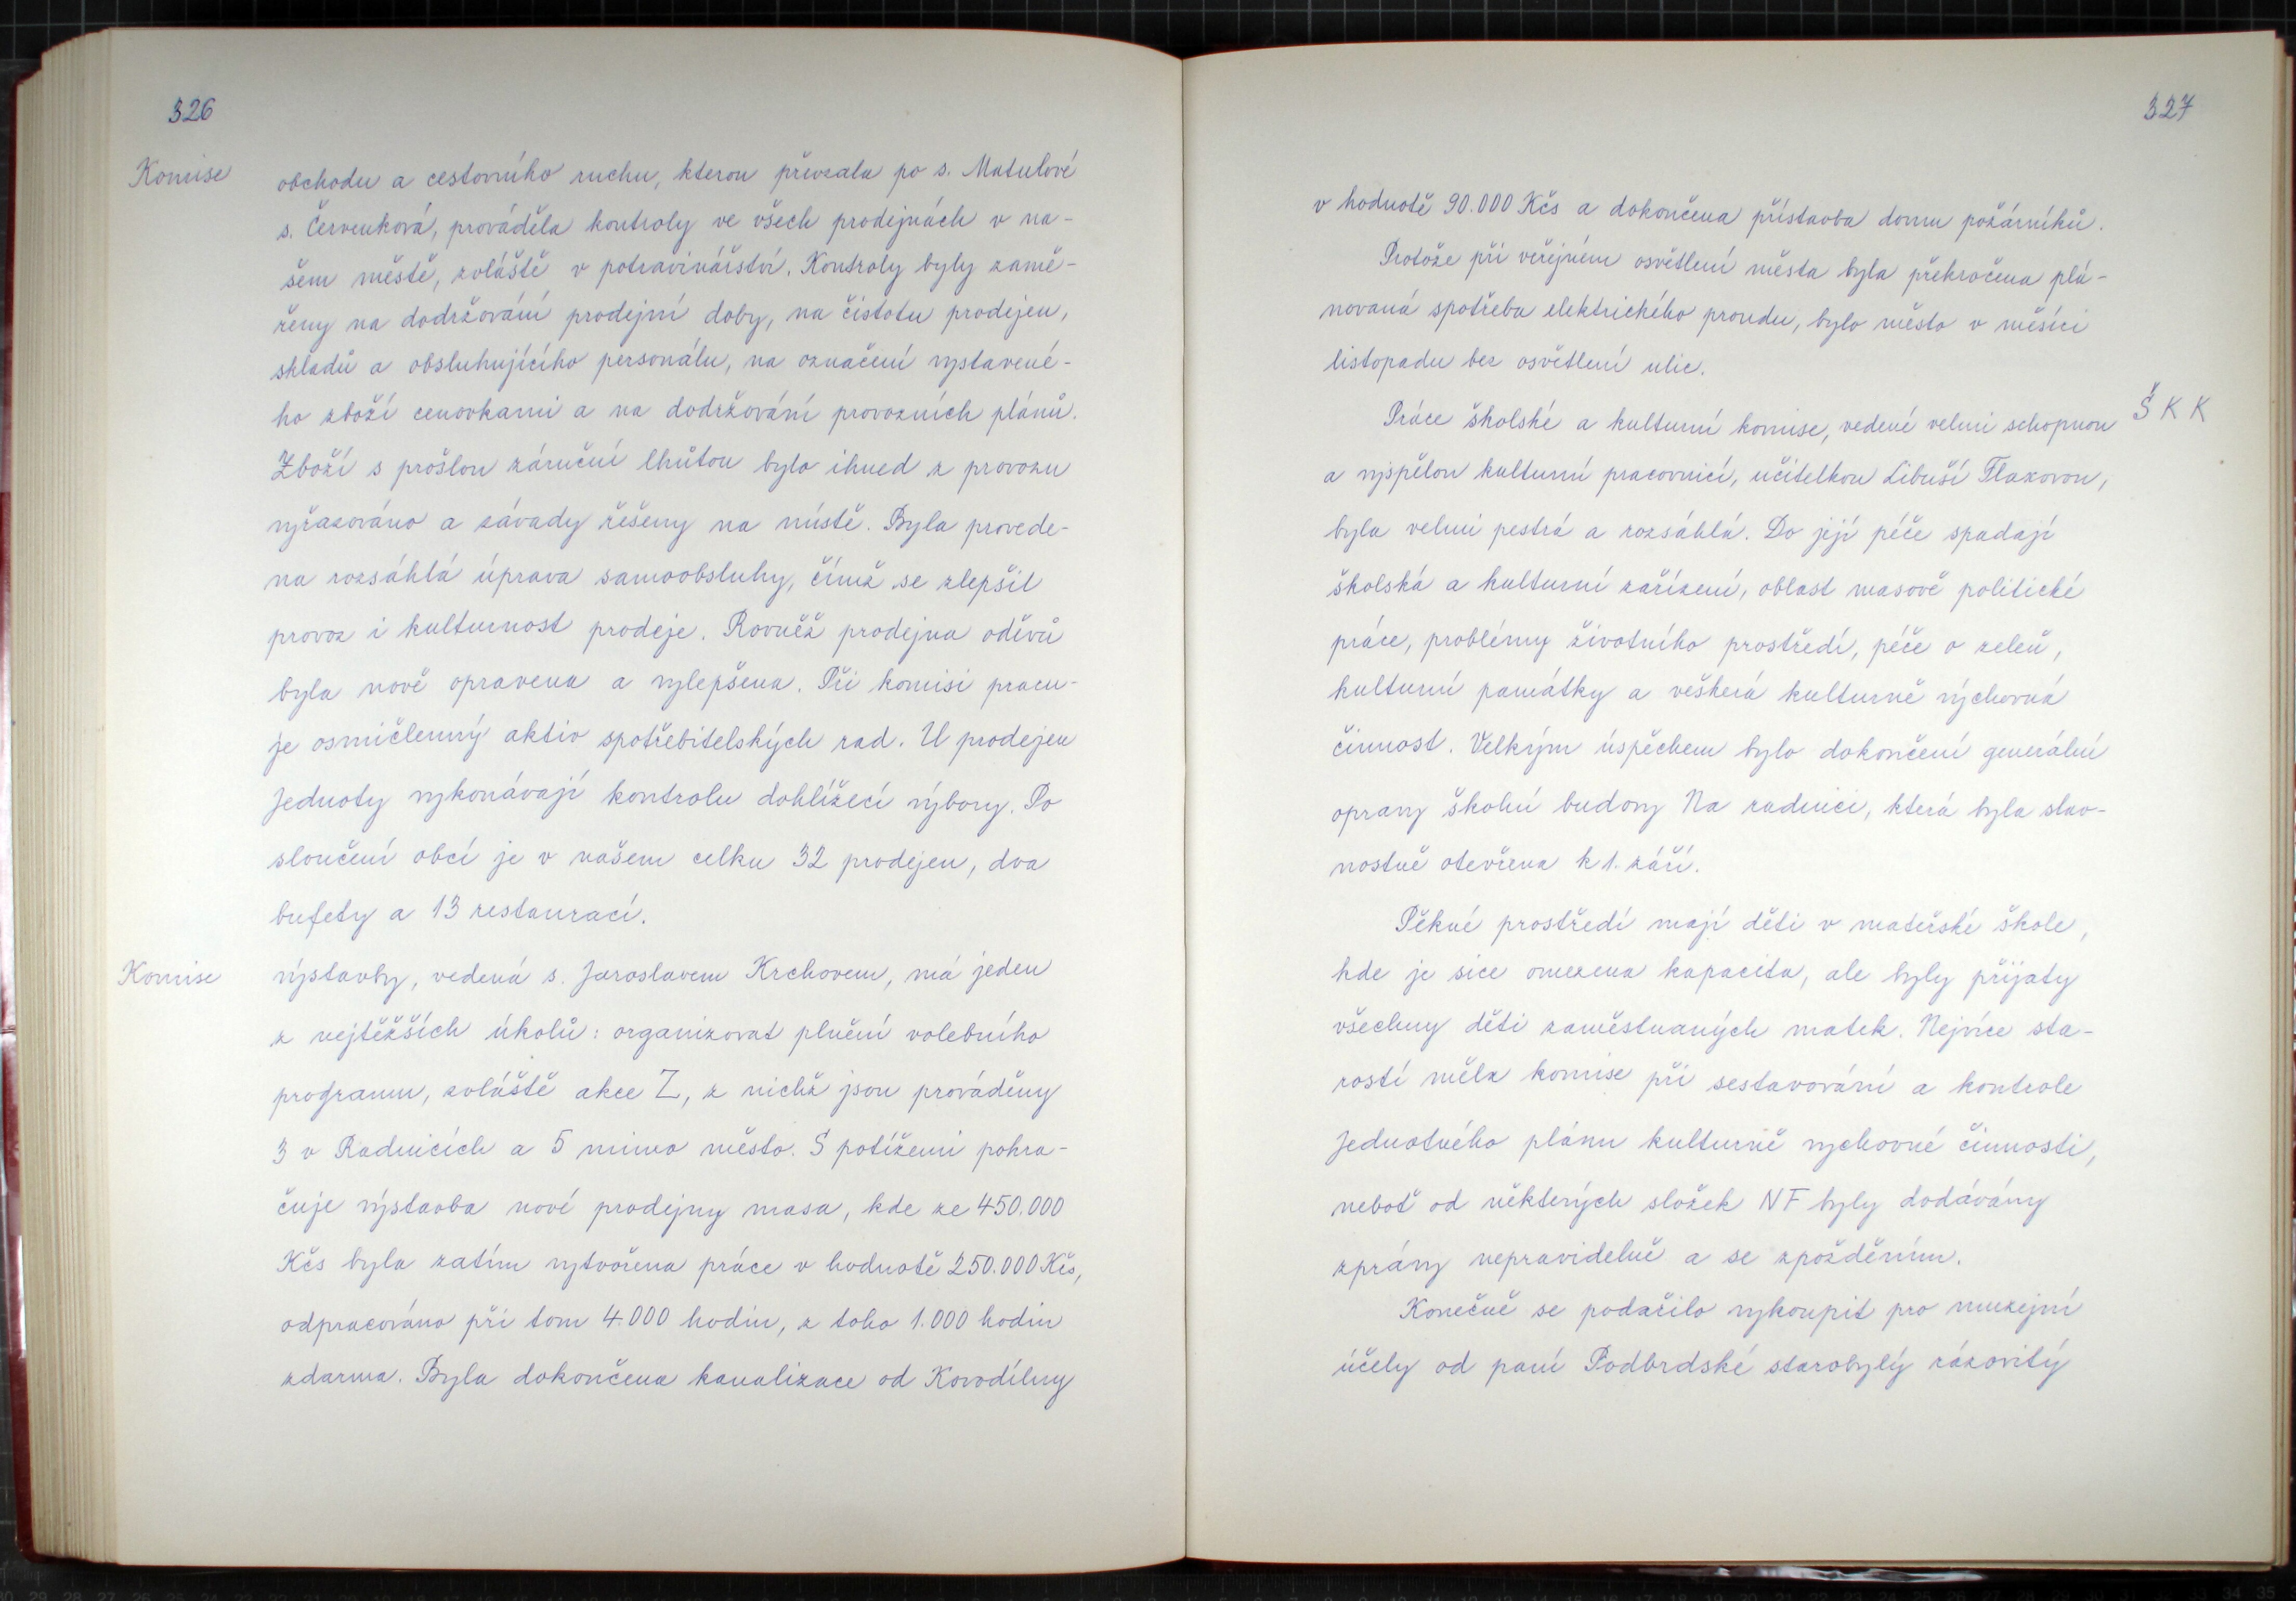 326
Komise
obchodu a cestovního ruchu, kterou převzala po s. Matulové
s. Červenková, prováděla kontroly ve všech prodejnách v na-
šem městě, zvláště v potravinářství. Kontroly byly zamě-
řeny na dodržování prodejní doby, na čistotu prodejen,
skladů a obsluhujícího personálu, na označení vystavené-
ho zboží cenovkami a na dodržování provozních plánů.
Zboží s prošlou záruční lhůtou bylo ihned z provozu
vyřazováno a závady řešeny na místě. Byla provede-
na rozsáhlá úprava samoobsluhy, čímž se zlepšil
provoz i kulturnost prodeje. Rovněž prodejna oděvů
byla nově opravena a vylepšena. Při komisi pracu-
je osmičlenný aktiv spotřebitelských rad. U prodejen
Jednoty vykonávají kontrolu dohlížecí výbory. Po
sloučení obcí je v našem celku 32 prodejen, dva
bufety a 13 restaurací.
Komise
výstavby, vedená s. Jaroslavem Krchovem, má jeden
z nejtěžších úkolů: organizovat plnění volebního
programu, zvláště akce Z, z nichž jsou prováděny
3 v Radnicích a 5 mimo město. S potížemi pokra-
čuje výstavba nové prodejny masa, kde ze 450.000
Kčs byla zatím vytvořena práce v hodnotě 250.000 Kčs,
odpracováno při tom 4.000 hodin, z toho 1.000 hodin
zdarma. Byla dokončena kanalizace od Kovodílny
327
v hodnotě 90.000 Kčs a dokončena přístavba domu požárníků.
Protože při veřejném osvětlení města byla překročena plá-
novaná spotřeba elektrického proudu, bylo město v měsíci
listopadu bez osvětlení ulic.
Š K K
Práce školské a kulturní komise, vedené velmi schopnou
a vyspělou kulturní pracovnicí, učitelkou Libuší Flaxovou,
byla velmi pestrá a rozsáhlá. Do její péče spadají
školská a kulturní zařízení, oblast masově politické
práce, problémy životního prostředí, péče o zeleň,
kulturní památky a veškerá kulturně výchovná
činnost. Velkým úspěchem bylo dokončení generální
opravy školní budovy Na radnici, která byla slav-
nostně otevřena k 1. září.
Pěkné prostředí mají děti v mateřské škole,
kde je sice omezena kapacita, ale byly přijaty
všechny děti zaměstnaných matek. Nejvíce sta-
rostí měla komise při sestavování a kontrole
Jednotného plánu kulturně vychovné činnosti,
neboť od některých složek NF byly dodávány
zprávy nepravidelně a se zpožděním.
Konečně se podařilo vykoupit pro muzejní
účely od paní Podbrdské starobylý rázovitý